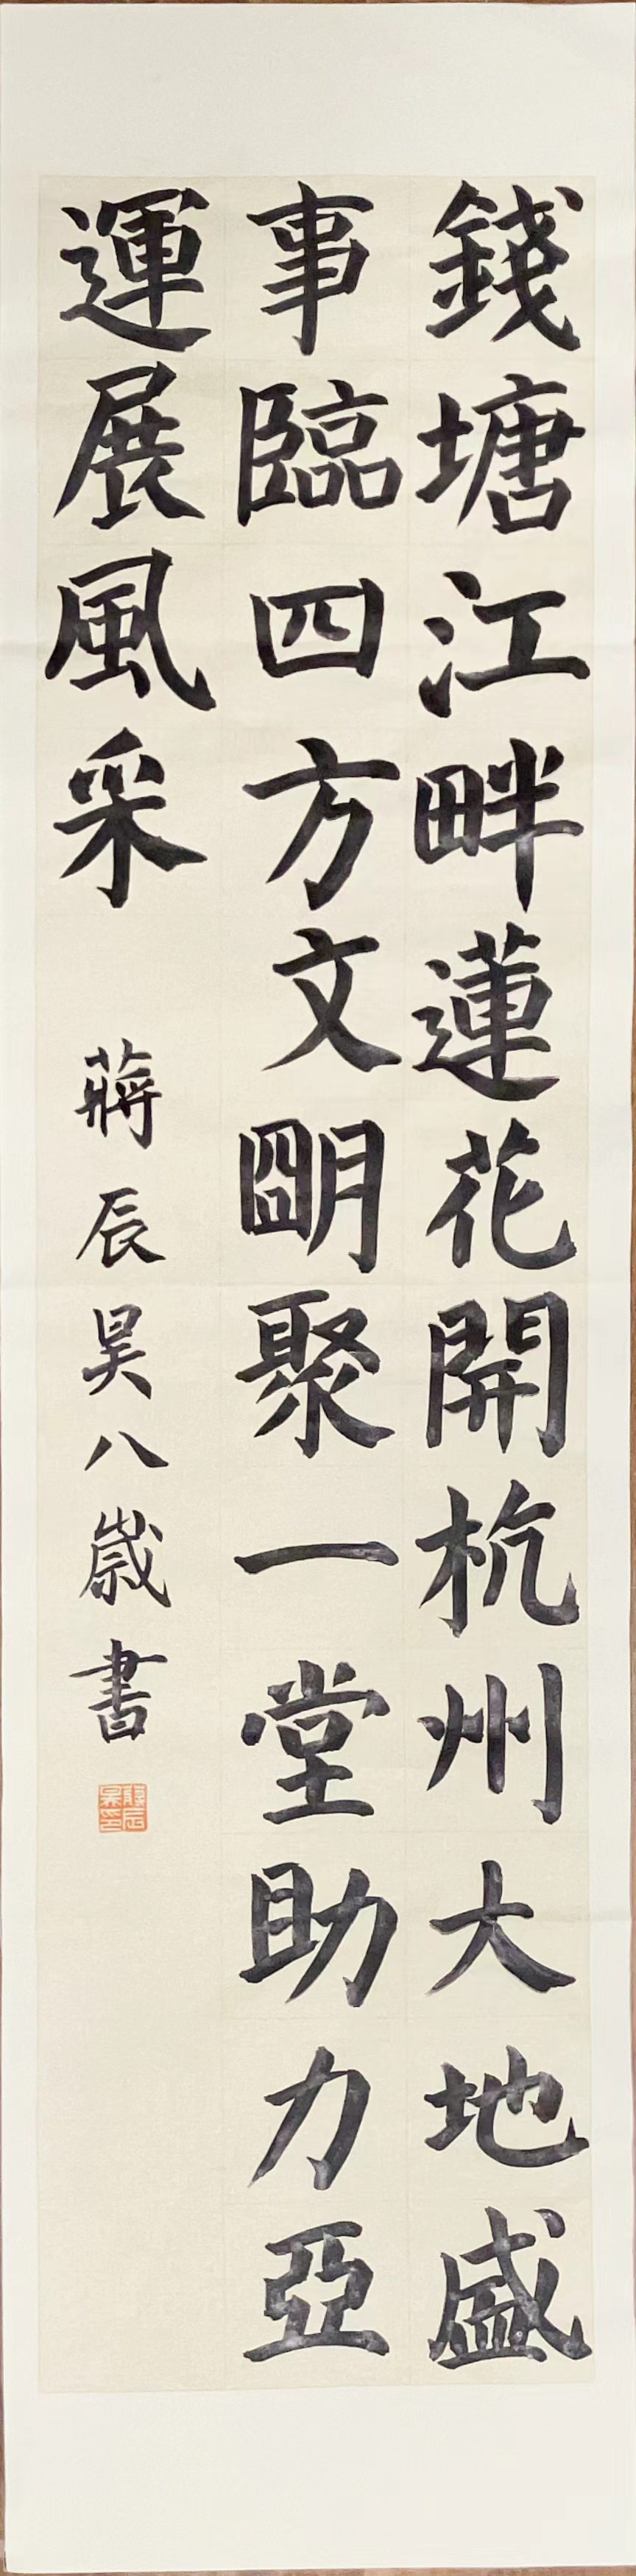 錢塘江畔蓮花開杭州大地盛
事臨四方文朙聚一堂助力亞
運展風采
蔣辰昊八歲書